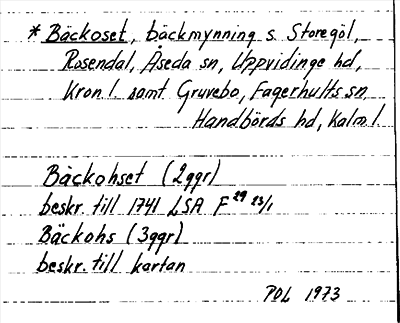 * Bäckoset, bäckmynning s. Storegöl,
Rosendal, Åseda sn, Uppvidinge hd,
Kron l. samt Gruvebo, Fagerhults sn,
Handbörds hd, Kalm l
Bäckohset (2ggr)
beskr. till 1741 LSA F 29 23/1
Bäckohs (3ggr)
beskr. till kartan
POL 1973